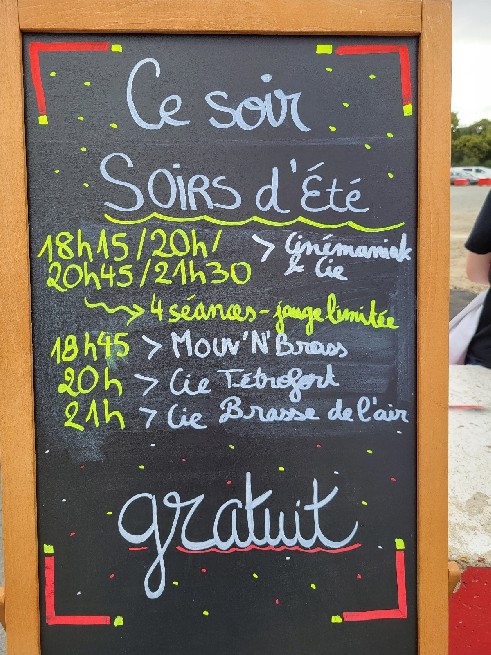 Ce soir
SOIRS d'Été
18h15/20h/ > Cinémaniak
20h45/21h30 & Cie
4 séances - jauge limitée
18h45 > MOUV'N'Brass
20h > Cie Tétrofort
21h > Cie Brasse de l'air
gratuit